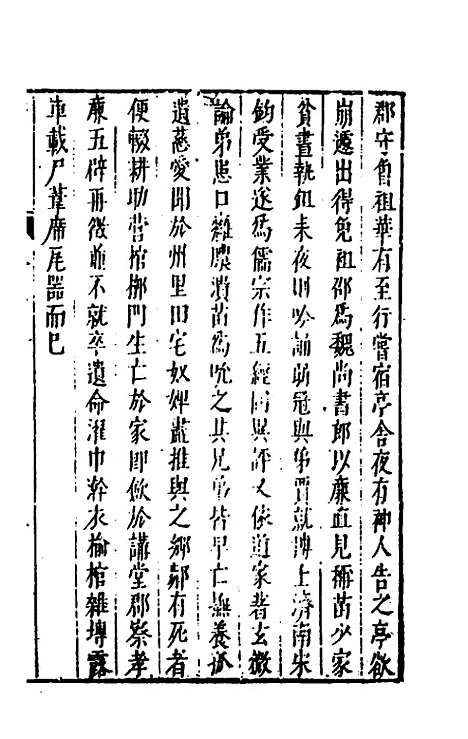 郡守曾祖華有至行嘗宿亭舍夜有神人告之亭欲
崩遽出得免祖邵爲魏尚書郎以廉直見稱苗少家
貧晝執鉏耒夜則吟誦弱冠與弟賈就博士濟南朱
鈞受業遂爲儒宗作五經同異評又依道家著玄微
論弟患口雝膿潰苗爲吮之其兄弟皆早亡撫養孤
遺慈愛聞於州里田宅奴婢盡推與之鄉鄰有死者
便輟耕助營棺槨門生亡於家即斂於講堂郡察孝
廉五辟再徵並不就卒遺命濯巾澣衣榆棺雜塼露
車載尸葦席瓦器而已